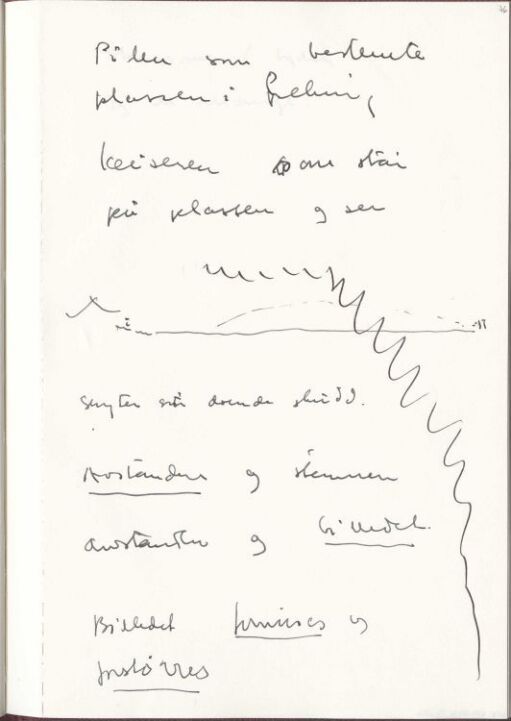 Pilen som bestemte
plassen i
keiseren som står
på plassen og ser
skudd.
Avstanden og stemmen
avstanden og billedet.
Billedet forminskes og
forstørres